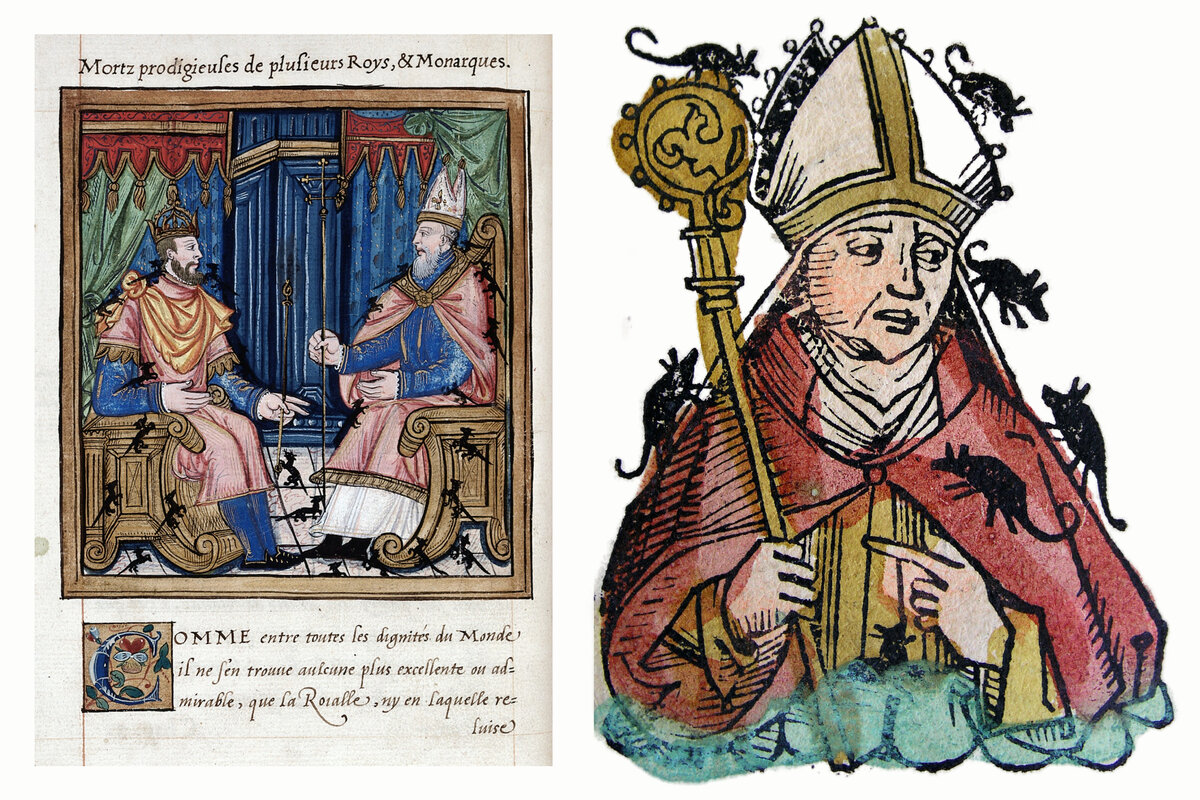 Mortz prodigieuses de plusieurs Roys, & Monarques.
COMME entre toutes les dignités du Monde
il ne s'en trouue aulcune plus excellente ou ad-
mirable, que la Roialle, ny en laquelle re-
luise